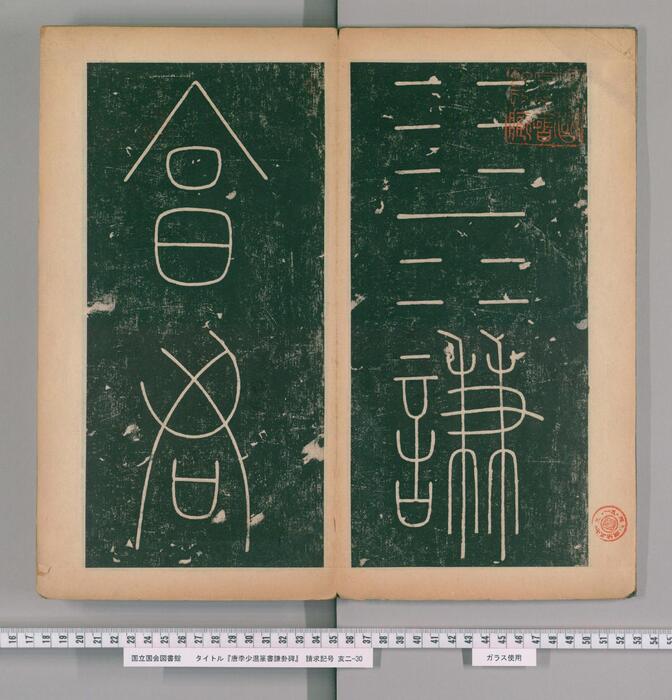 ䷎謙
亯君
16 17 18 19 20 21 22 23 24 25 26 27 28 29 30 31 32 33 34 35 36 37 38 39 40 41 42 43 44 45 46 47 48 49 50 51 52 53 54 55
国立国会図書館 タイトル『唐李少温篆書謙卦碑』 請求記号 亥二-30
ガラス使用